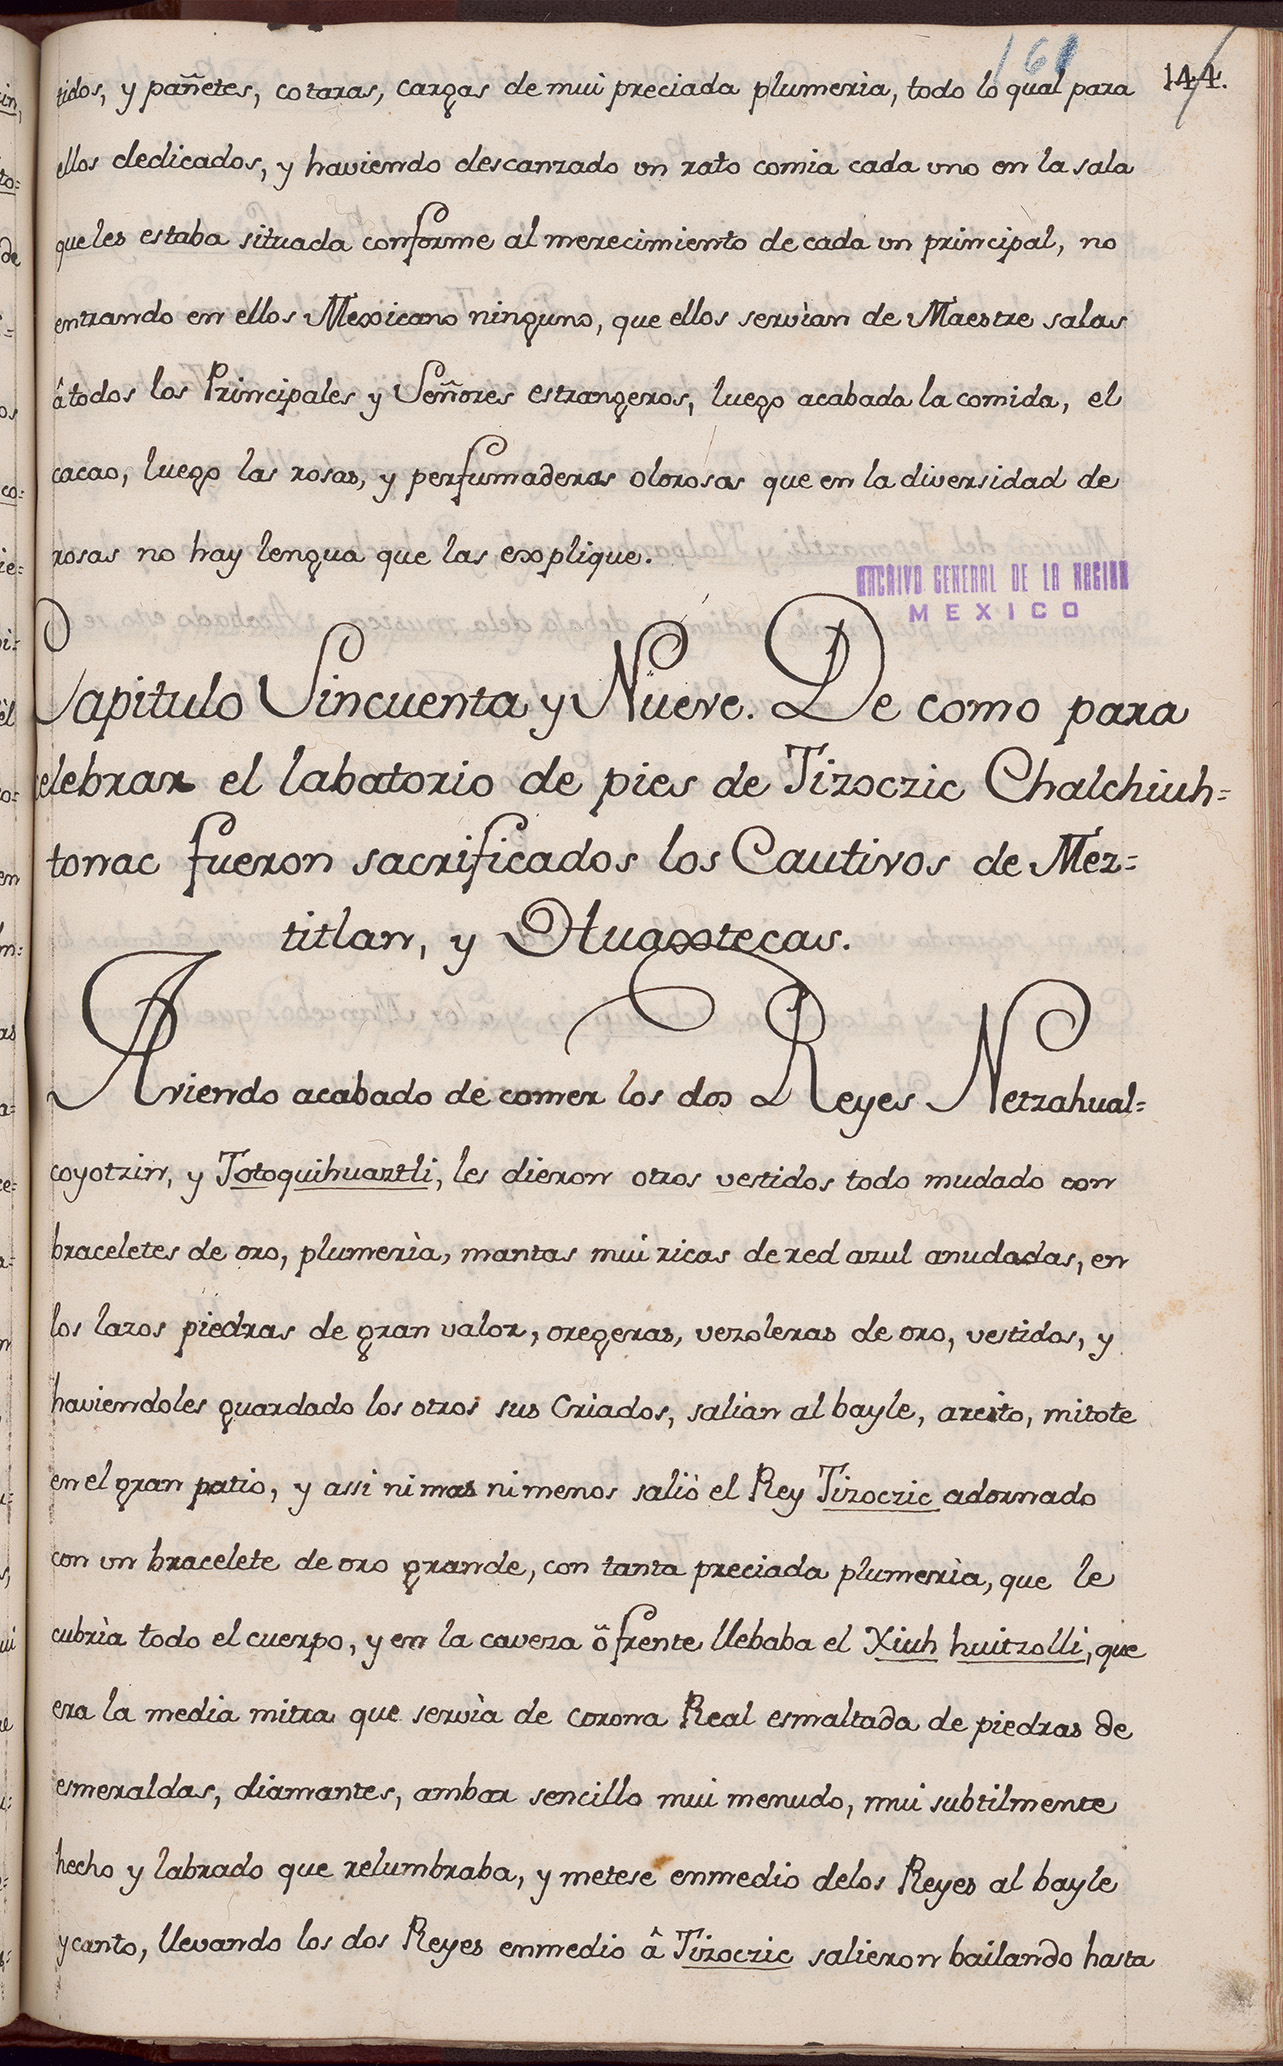 161
144.
tidos, y pañetes, cotaras, cargas de mui preciada plumerìa, todo lo qual para
ellos dedicados, y haviendo descanzado un rato comia cada uno en la sala
que les estaba situada conforme al merecimiento de cada un principal, no
entrando en ellos Mexicano ninguno, que ellos servìan de Maestre salas
â todos los Principales y Señores estrangeros, luego acabada la comida, el
cacao, luego las rosas, y perfumaderas olorosas que en la diversidad de
rosas no hay lengua que las explique.
ARCHIVO GENERAL DE LA NACION
MEXICO
Capitulo Sincuenta y Nueve. De como para
celebrar el labatorio de pies de Tizoczic Chalchiuh=
tonac fueron sacrificados los Cautivos de Mez=
titlan, y Huaxtecas.
Aviendo acabado de comer los dos Reyes Netzahual=
coyotzin, y Totoquihuaztli, les dieron otros vestidos todo mudado con
braceletes de oro, plumerìa, mantas mui ricas de red azul anudadas, en
los lazos piedras de gran valor, oregeras, vezoleras de oro, vestidos, y
haviendoles guardado los otros sus Criados, salian al bayle, areito, mitote
en el gran patio, y assi ni mas ni menos saliò el Rey Tizoczic adornado
con un bracelete de oro grande, con tanta preciada plumerìa, que le
cubrìa todo el cuerpo, y en la caveza ô frente llebaba el Xiuh huitzolli, que
era la media mitra que servìa de corona Real esmaltada de piedras de
esmeraldas, diamantes, ambar sencillo mui menudo, mui subtilmente
hecho y labrado que relumbraba, y metese enmedio delos Reyes al bayle
y canto, llevando los dos Reyes enmedio â Tizoczic salieron bailando hasta